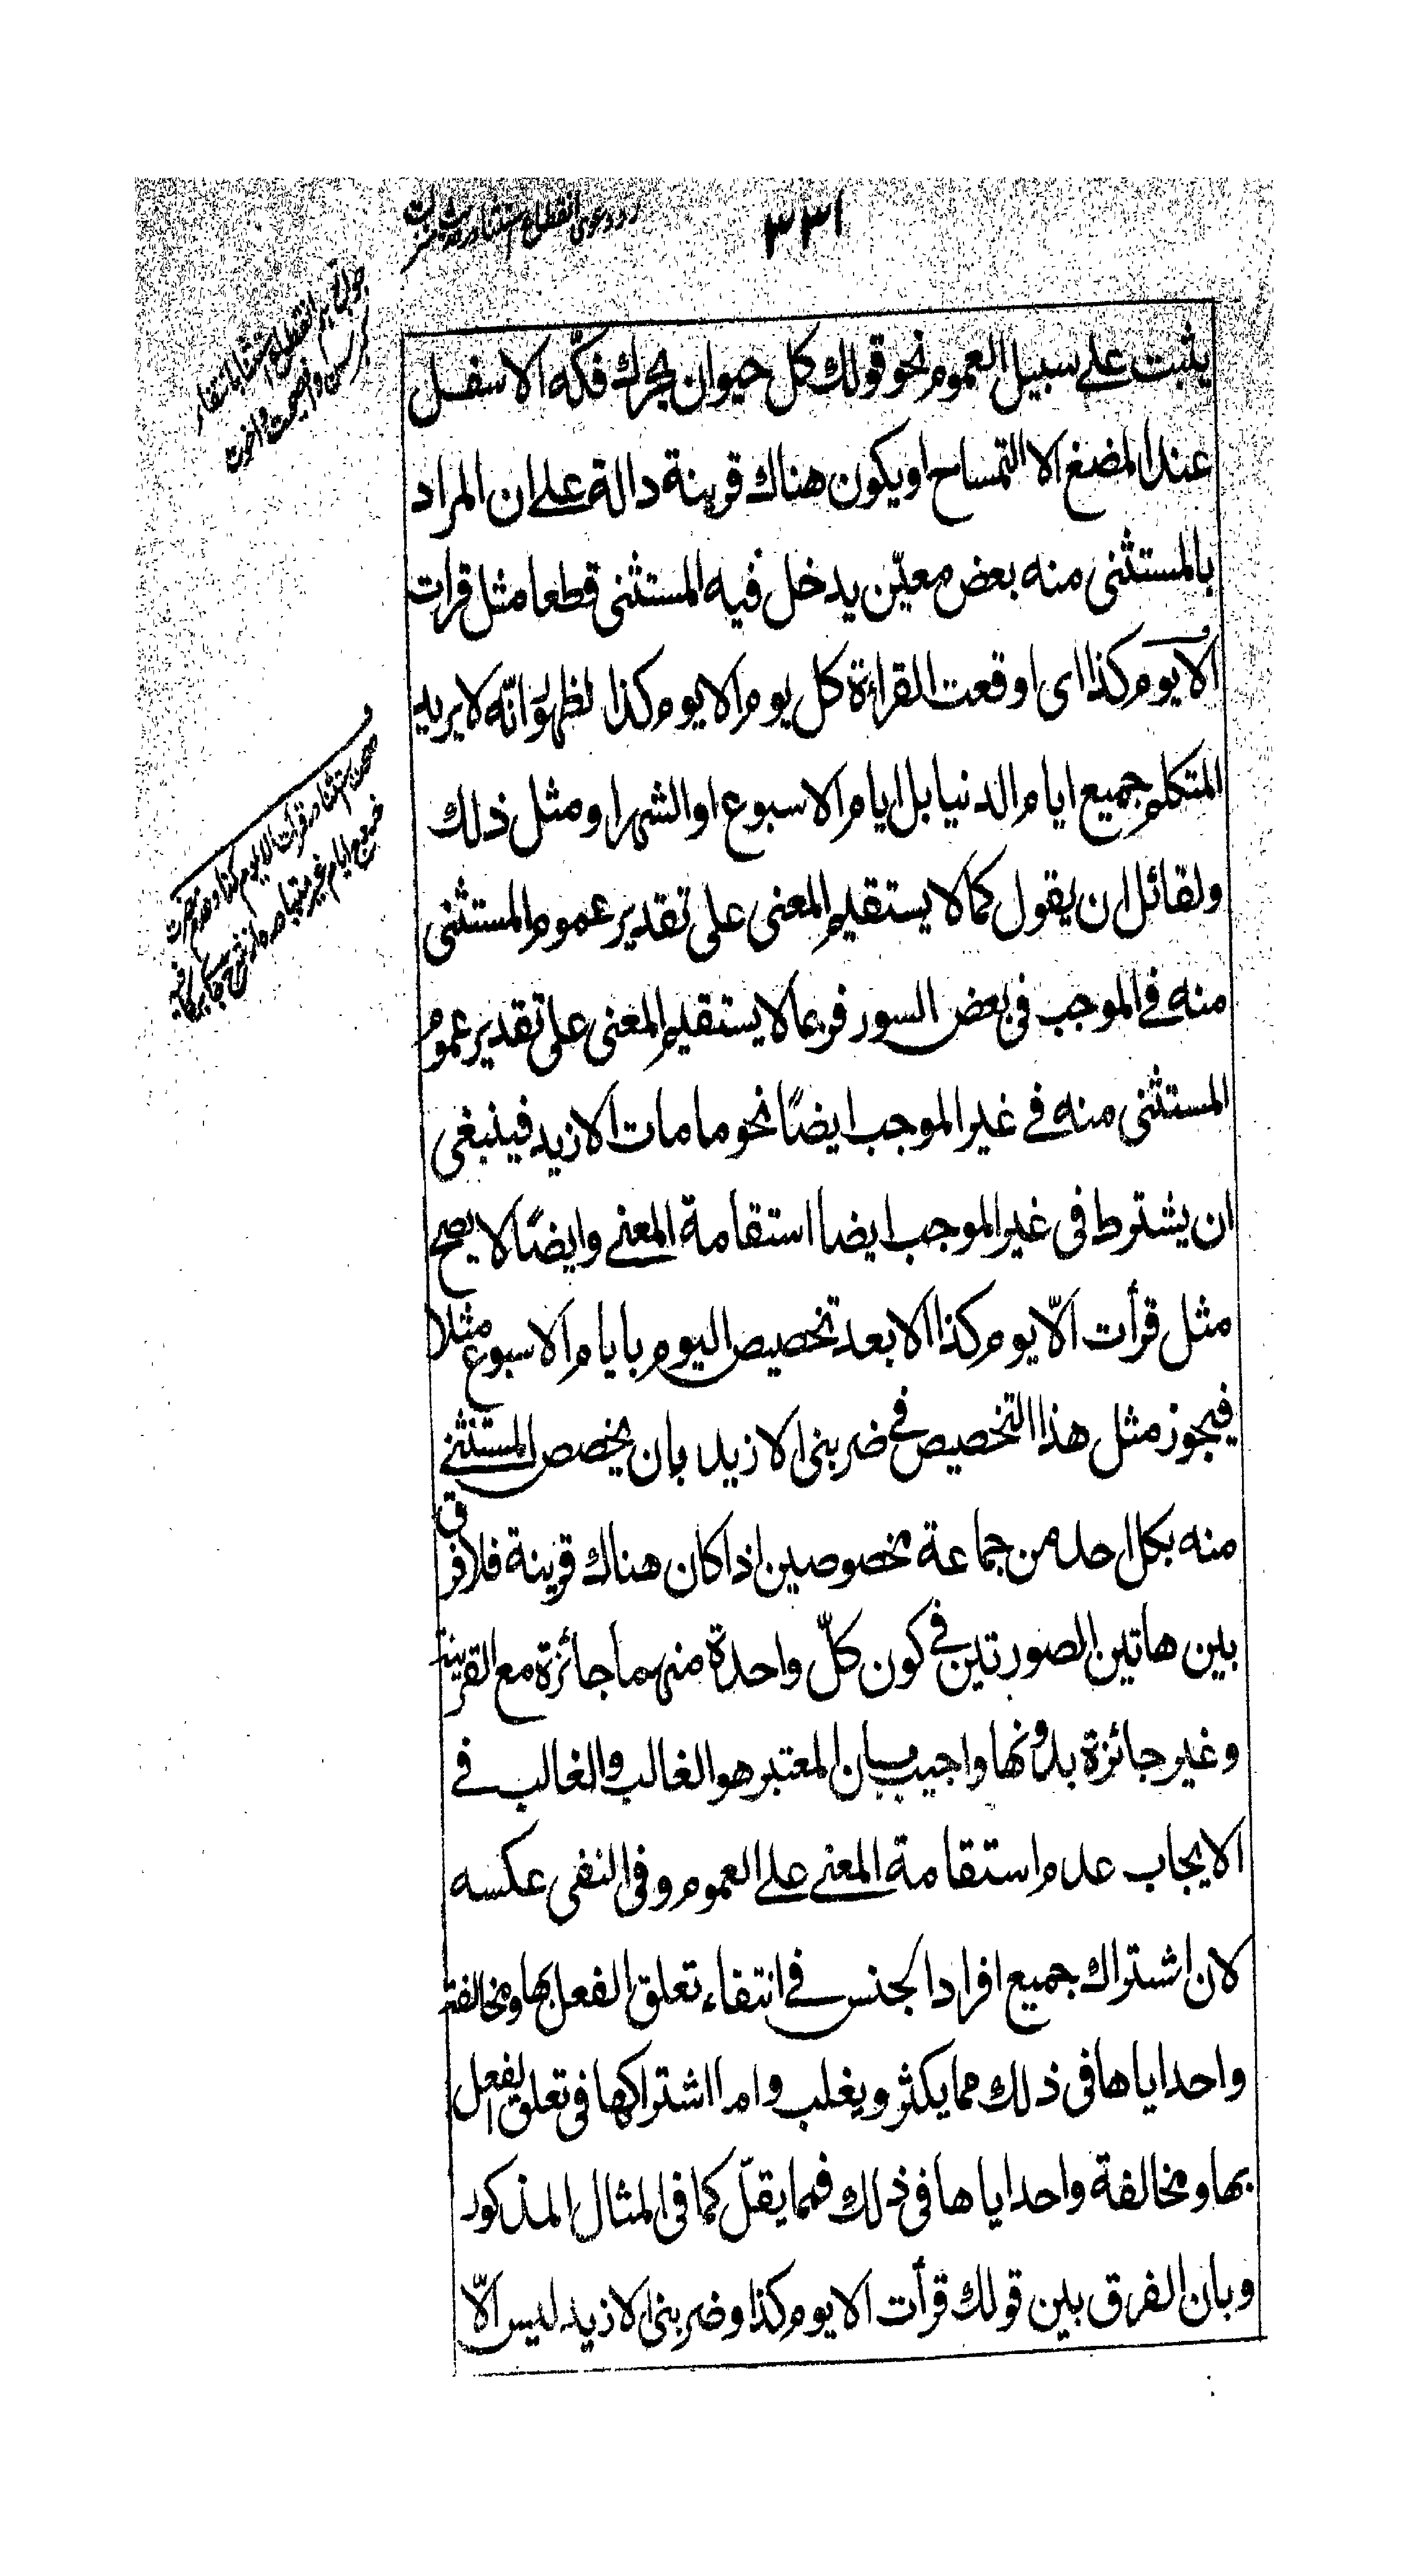 ٣٣١
يثبت على سبيل العموم نحو قولك كل حيوان يحرك فكّه الاسفل
عند المضغ الا التمساح او يكون هناك قرينة دالة على ان المراد
بالمستثنى منه بعض معيّن يدخل فيه المستثنى قطعا مثل قرات
الا يوم كذا اى اوقعت القراءة كل يوم الا يوم كذا لظهور انّه لا يريد
المتكلم جميع ايام الدنيا بل ايام الاسبوع او الشهر او مثل ذلك
ولقائل ان يقول كما لا يستقيم المعنى على تقدير عموم المستثنى
منه فى الموجب فى بعض السور فربما لا يستقيم المعنى على تقدير عموم
المستثنى منه فى غير الموجب ايضًا نحو ما مات الا زيد فينبغى
ان يشترط فى غير الموجب ايضا استقامة المعنى وايضًا لا يصح
مثل قرأت الّا يوم كذا الا بعد تخصيص اليوم بايام الاسبوع مثلا
فيجوز مثل هذا التخصيص فى ضربنى الا زيد بان يخصص المستثنى
منه بكل احد من جماعة مخصوصين اذا كان هناك قرينة فلا فرق
بين هاتين الصورتين فى كون كلّ واحدة منهما جائزة مع القرينة
وغير جائزة بدونها واجيب بان المعتبر هو الغالب والغالب فى
الايجاب عدم استقامة المعنى على العموم وفى النفى عكسه
لان اشتراك جميع افراد الجنس فى انتفاء تعلق الفعل بها ومخالفة
واحد اياها فى ذلك مما يكثر ويغلب واما اشتراكها فى تعلق الفعل
بها ومخالفة واحد اياها فى ذلك فمما يقلّ كما فى المثال المذكور
وبان الفرق بين قولك قرأت الا يوم كذا وضربنى الا زيد ليس الّا